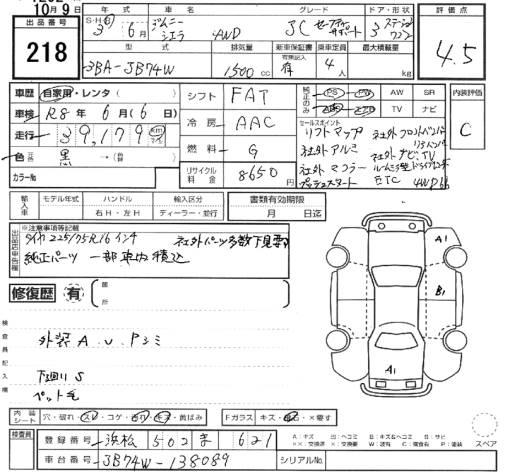 10月9日
出品番号
218
年式 車名 グレード ドア・形状
S・H 3年 6月 ジムニーシエラ 4WD JC セーフティサポート 3 ステーションワゴン
型式 排気量 新車保証書 乗車定員 最大積載量
3BA-JB74W 1500cc 有 4人 kg
評価点
4.5
車歴 自家用・レンタ
車検 R8年 6月(6日)
走行 39,179 km
色 元色 黒 → (替)
カラー№
シフト FAT
冷房 AAC
燃料 G
リサイクル料金 8650
純正のみ
PS PW AW SR
TV ナビ
セールスポイント
リフトマップ 社外フロントバンパー
リアバンパー
社外アルミ 社外ナビ、TV
社外マフラー
プッシュスタート ETC 4WD
内装評価
C
輸入車 モデル年式 ハンドル 輸入区分
年 右H・左H ディーラー・並行
書類有効期限
月 日迄
出品店申告欄
※注意事項等記載
タイヤ225/75R16インチ 社外パーツ多数下見要
純正パーツ 一部車内積込
修復歴 有
箇所
検査員記入欄
外装A.U.Pシミ
下廻りS
ペット毛
A1
B1
A1
内装シート 穴・破れ・スレ・コゲ・汚れ・キズ・黄ばみ
Fガラス キズ・・×要す
スペア
検査員
登録番号 浜松 502 ま 621
A:キズ U:ヘコミ B:キズ&ヘコミ S:サビ
車台番号 JB74W-138089
シリアル№